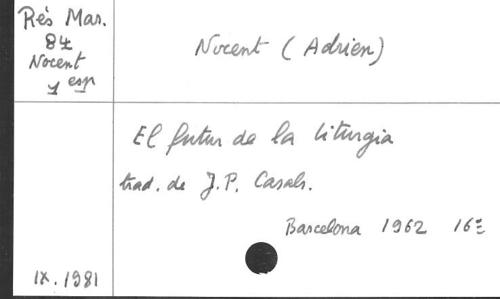 Rés Mar.
84
Nocent
1 esp
Nocent (Adrien)
El futur de la liturgia
trad. de J.P. Casals.
Barcelona 1962 16º
IX.1981